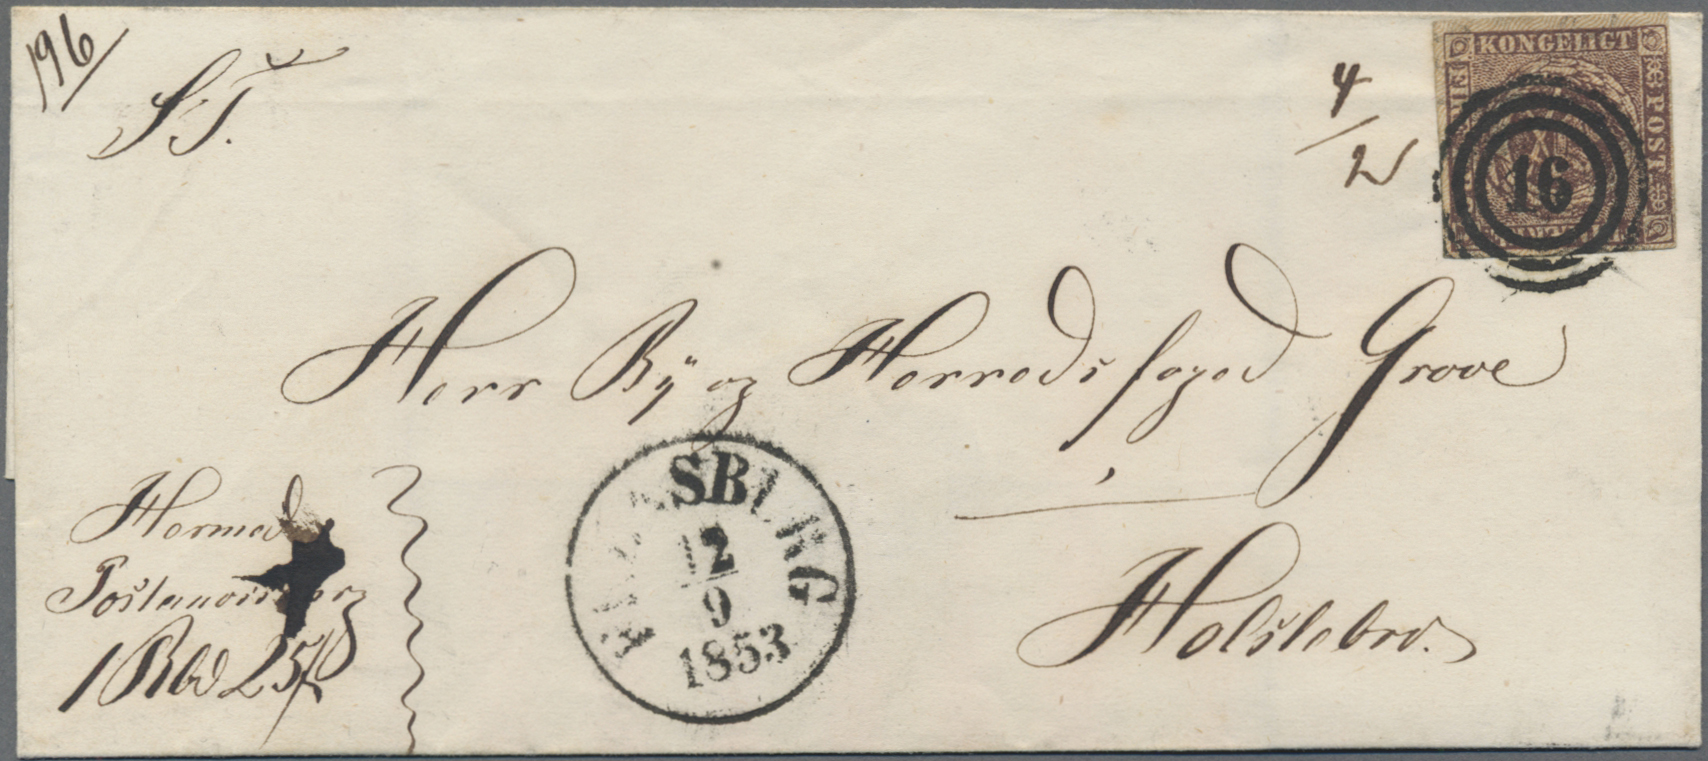 196/
S. T.
4/2
KONGELIGT
POST
16
Herr By og Herredsfoged Grove
Holstebro.
Hermed
1 Rbd 25 ß
SBURG
12
9
1853